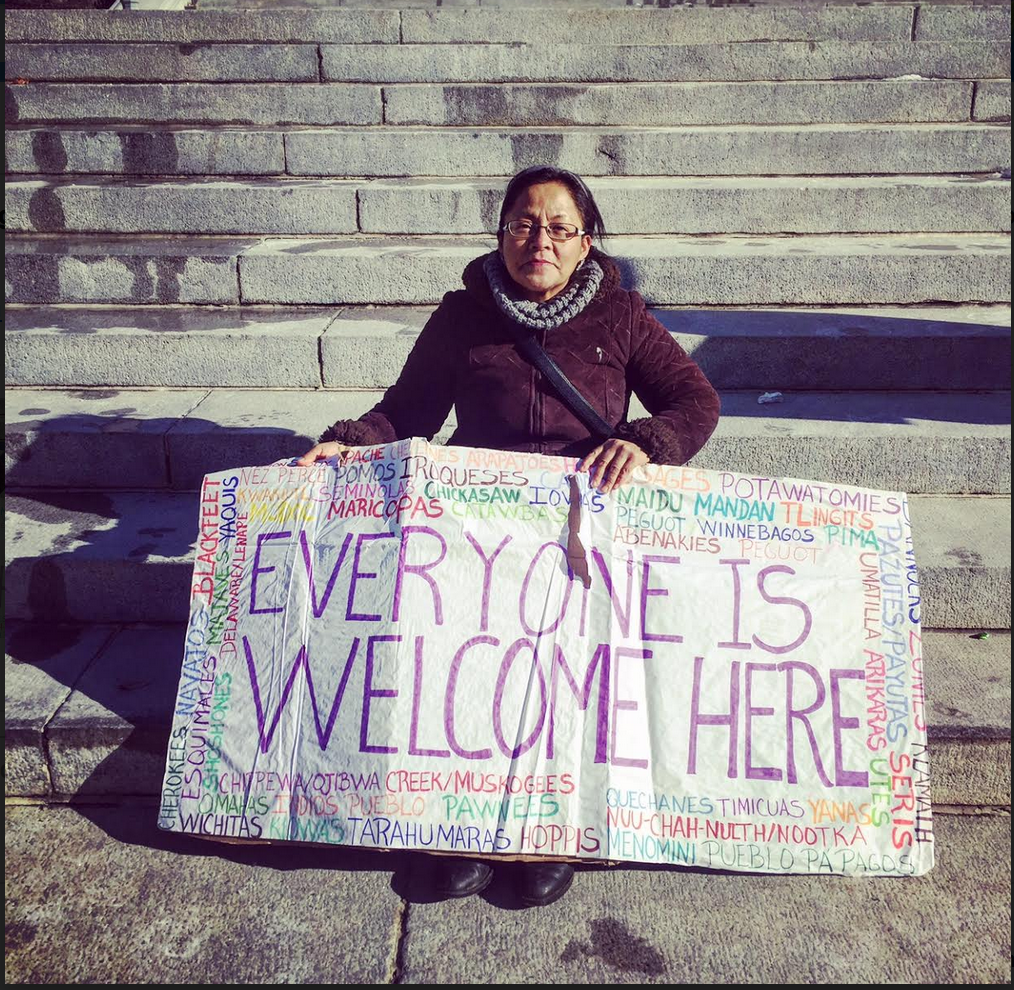 PACHE
ARAPAJOES
NEZ PERCE POMOS IROQUESES
SAGES POTAWATOMIES
SEMINOLAS CHICKASAW IOWAS MAIDU MANDAN TLINGITS
MARICOPAS CATAWBAS PEGUOT WINNEBAGOS PIMA
ABENAKIES PEGUOT
EVERYONE IS
WELCOME HERE
CHEROKEES NAVAJOS BLACKFEET
ESQUIMALES MOJAVES YAQUIS
SHOSHONES DELAWARE/LENAPE
PAZUTES/PAYUTAS SERIS
UMATILLA ARIKARAS UTES
CHIPPEWA/OJIBWA CREEK/MUSKOGEES
OMAHAS INDIOS PUEBLO PAWNEES
WICHITAS KIOWAS TARAHUMARAS HOPPIS
QUECHANES TIMICUAS YANAS
NUU-CHAH-NULTH/NOOTKA
MENOMINI PUEBLO PAPAGOS